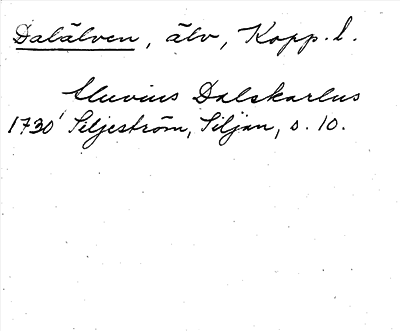 Dalälven, älv, Kopp. l.
Fluvius Dalskarlus
1730 Siljeström, Siljan, s. 10.